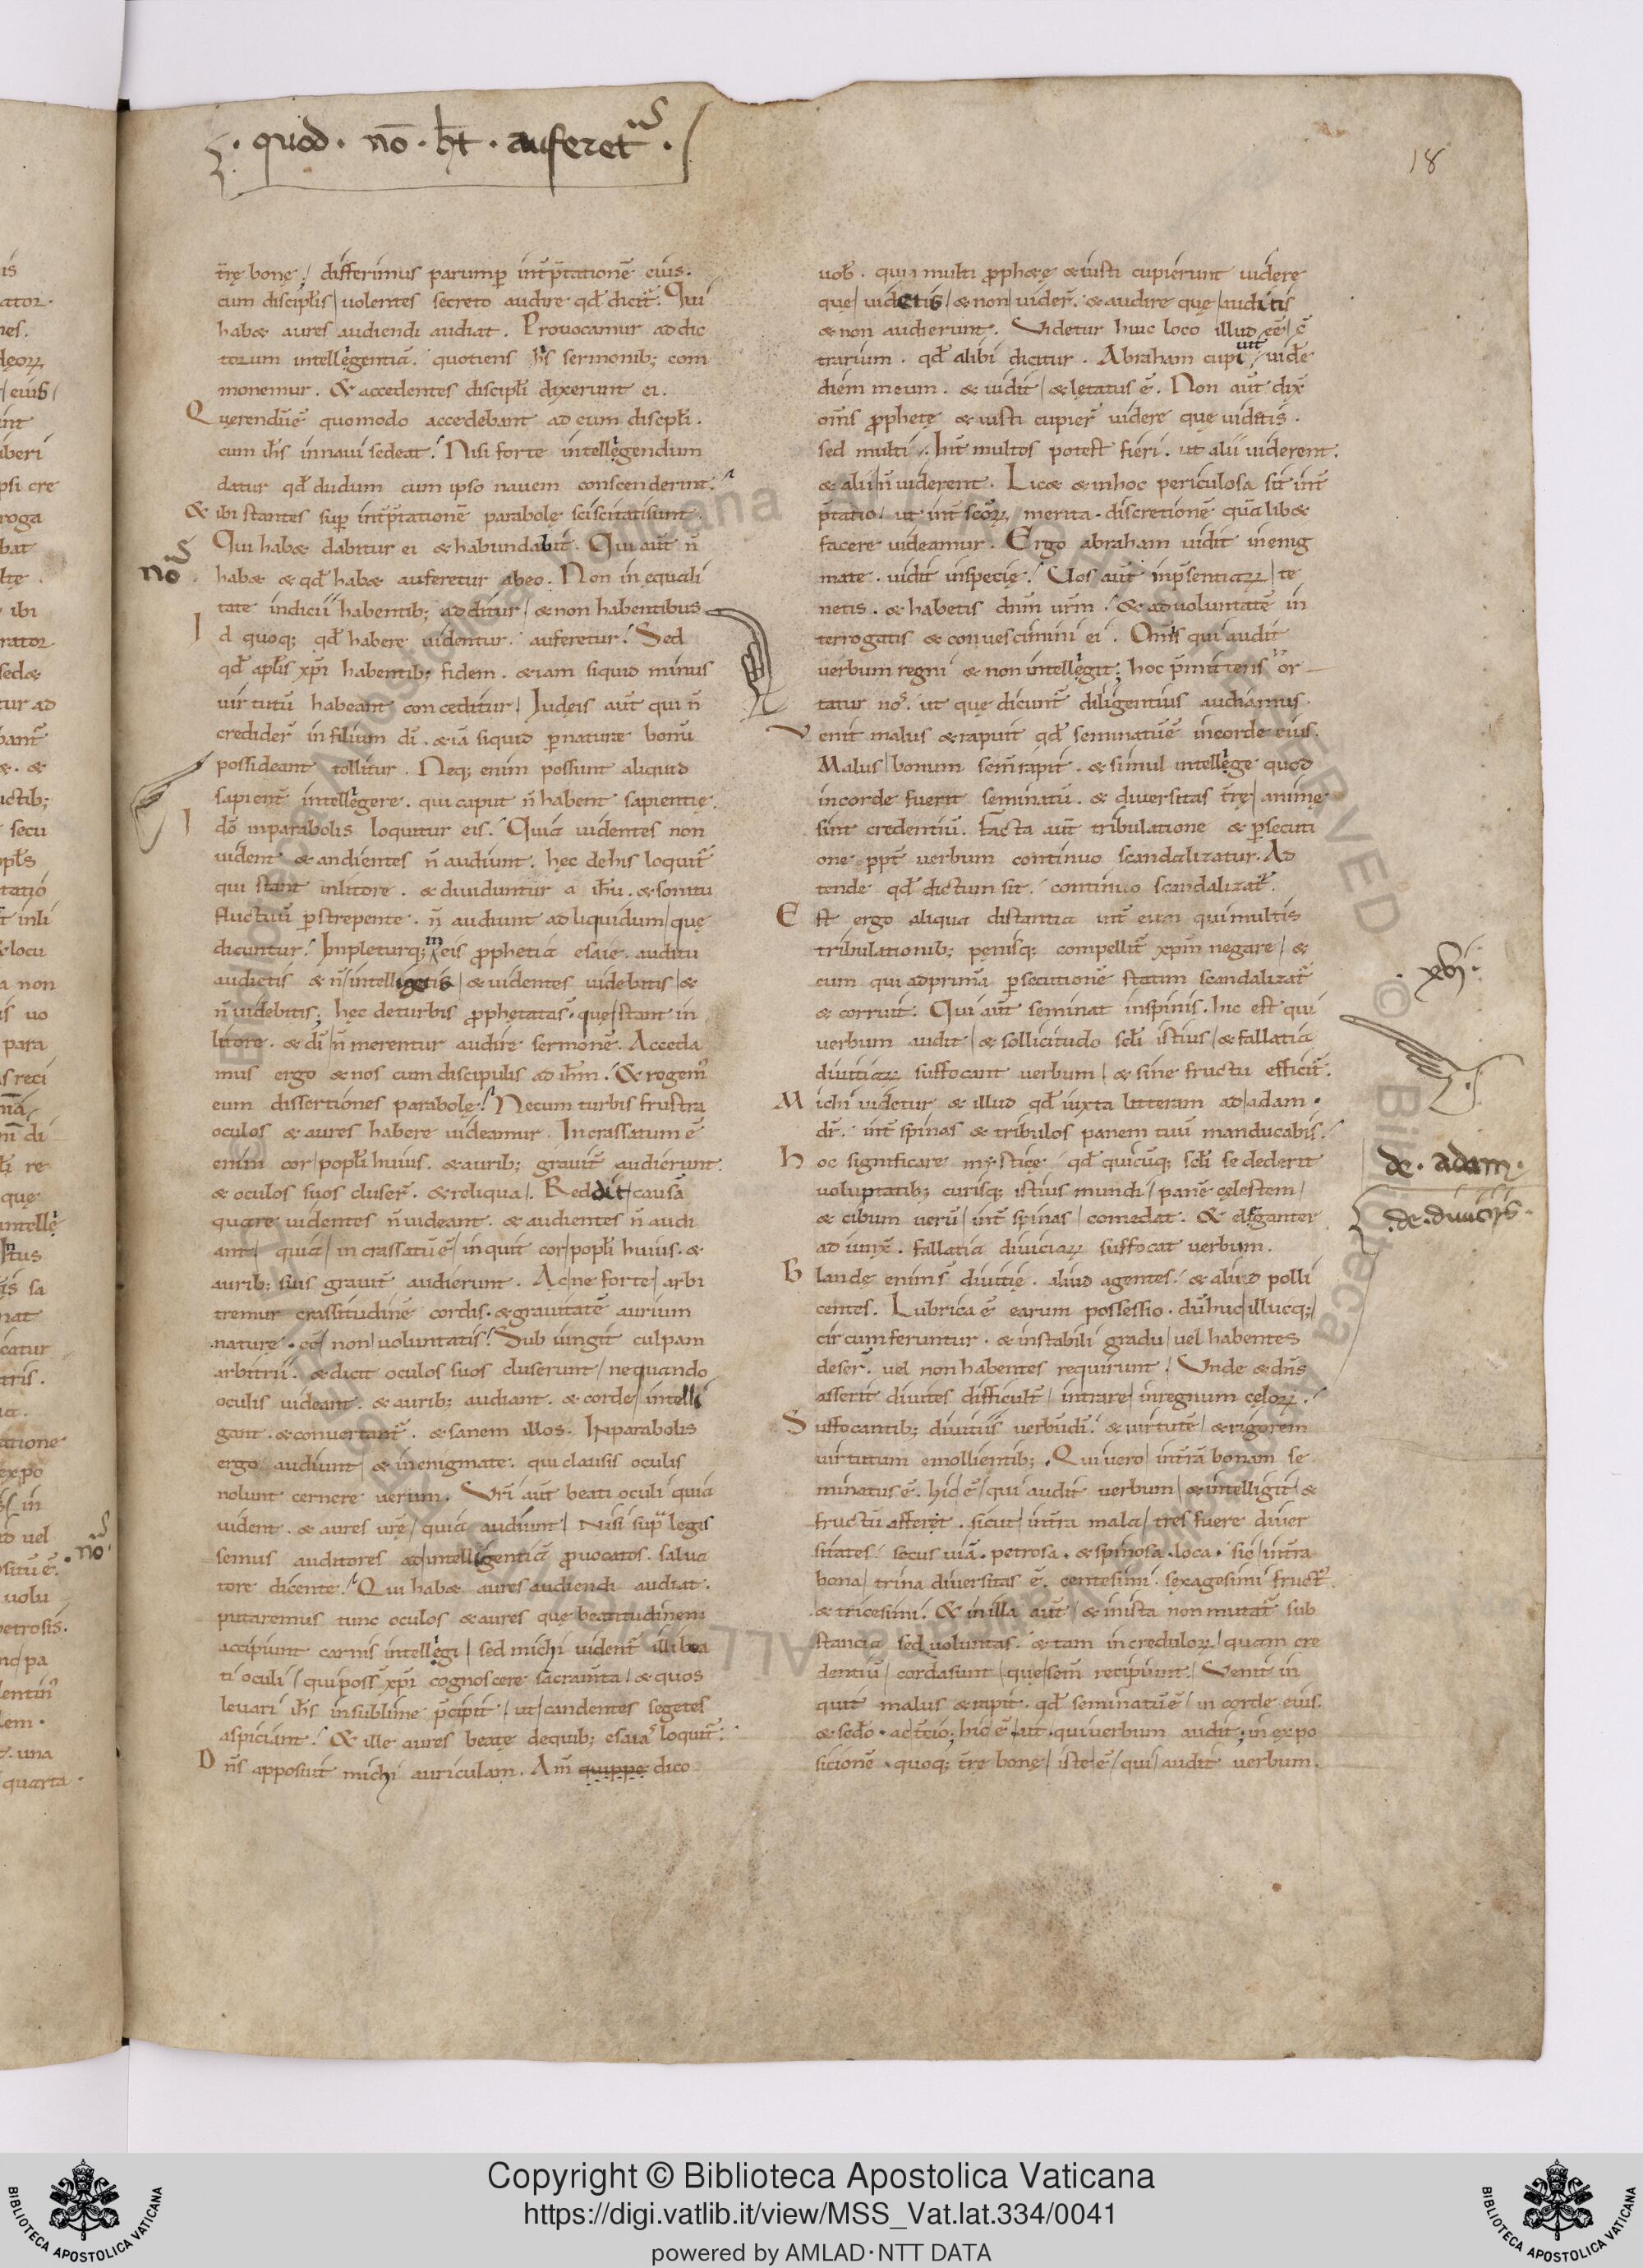 · quod · nō · ħt · auferet᷑ ·
18
t̄rę bonę; differimus parumꝑ int̄p̄tationē eius.
cum discipłis uolentes secreto audire qđ dicit᷑. Qui
habæ aures audiendi audiat. Prouocamur ad dic
torum intellegentiā. quotiens his sermonib; com
monemur. & accedentes discipłi dixerunt ei.
Querendūē quomodo accedebant ad eum discipłi.
cum ihs innaui sedeat. Nisi forte intellegendum
datur qđ dudum cum ipso nauem conscenderint.
& ibi stantes suꝑ int̄p̄tationē parabolę sciscitatisunt
Qui habæ dabitur ei & habundabit. Qui aūt n̄
no
habæ & qđ habæ auferetur abeo. Non in equali
tate indicii habentib; additur & non habentibus
Id quoq; qđ habere uidentur. auferetur. Sed
qđ apłis xpī habentib; fidem. & iam siquid minus
uirtutū habeant conceditur Iudeis aūt qui n̄
credider̄ in filium dī. & iā siquid ꝑnaturæ bonū
possideant tollitur. Neq; enim possunt aliquid
sapient̄ intellegere. qui caput n̄ habent sapientię.
Idō inparabolis loquitur eis. Quia uidentes non
uident & audientes n̄ audiunt. hęc dehis loquit᷑
qui stant inlitore. & diuiduntur a ihū. & sonitu
fluctuū ꝑstrepente. n̄ audiunt ad liquidum quę
dicuntur. Impleturq; in eis ꝓphetia esaie. auditu
audietis & n̄ intelligetis & uidentes uidebitis &
n̄ uidebitis; hęc deturbis ꝓphetatas. quę stant in
litore. & dī n̄ merentur audire sermonē. Acceda
mus ergo & nos cum discipulis ad ihm. & rogem᷒
eum dissertiones parabolę. Necum turbis frustra
oculos & aures habere uideamur. Incrassatum ē
enim cor popłi huius. & aurib; grauit̄ audierunt.
& oculos suos cluser̄. & reliqua. Reddit causā
quare uidentes n̄ uideant. & audientes n̄ audi
ant quia in crassatū ē inquit cor popłi huius. &
aurib; suis grauit̄ audierunt. Ac ne forte arbi
tremur crassitudinē cordis. & grauitatē aurium
naturę. eē non uoluntatis. Sub iungit culpam
arbitrii. & dicit oculos suos cluserunt ne quando
oculis uideant. & aurib; audiant. & corde intelli
gant. & conuertant᷑. & sanem illos. INparabolis
ergo audiunt & inenigmate. qui clausis oculis
nolunt cernere uerum. Vrī aūt beati oculi quia
uident. & aures urę quia audiunt Nisi sup̄ legis
no
semus auditores ad intelligentiā ꝓuocatos. salua
tore dicente. Qui habæ aures audiendi audiat.
putaremus tunc oculos & aures quę beatitudinem
accipiunt carnis intellegi sed michi uident᷑ illi bea
ti oculi qui poss̄ xpī cognoscere sacram̄ta & quos
leuari ihs insublime p̄cipit ut candentes segetes
aspiciant. & ille aures beatę dequib; esaias loquit᷑.
Dn̄s apposuit michi auriculam. Am̄ quippe dico
uob̄. quia multi ꝓphæę & iusti cupierunt uidere
que uidetis & non uider̄. & audire quę auditis
& non audierunt. Videtur huic loco illud eē c̄
trarium. qđ alibi dicitur. Abraham cupiuit uiđe
diem meum. & uidit & lętatus ē. Non aūt dix̄
oms ꝓphetę & iusti cupier̄ uidere que uidetis.
sed multi. Int̄ multos potest fieri. ut alii uiderent.
& alii n̄ uiderent. Licæ & inhoc periculosa sit int̄
p̄tatio ut int̄ sc̄oꝝ merita. discretionē quālibæ
facere uideamur. Ergo abraham uidit inenig
mate. uidit inspecie. Vos aūt inp̄sentiaꝝ te
netis. & habetis dnm̄ urm̄. & aduoluntatē in
terrogatis & conuescimini ei. Om̄is qui audit
uerbum regni & non intellegit; hoc p̄mittens or
tatur nos. ut quę dicunt᷑ diligentius audiamus.
Venit malus & rapuit qđ seminatū ē incorde eius.
Malus bonum sem̄ rapit. & simul intellege quod
incorde fuerit seminatū. & diuersitas t̄rę animę
sint credentiū. Facta aūt tribulatione & ꝑsecuti
one ꝓpt̄ uerbum continuo scandalizatur. Ad
tende qđ dictum sit. continuo scandalizat᷑.
Est ergo aliqua distantia int̄ eum qui multis
tribulationib; pęnisq; compellit᷑ xpm̄ negare &
eum qui adprimā ꝑsecutionē statim scandalizat᷑
& corruit. Qui aūt seminat inspinis. hic est qui
· xvi ·
uerbum audit & sollicitudo scłi istius & fallatia
diuitiaꝝ suffocant uerbum & sine fructu efficit᷑.
Michi uidetur & illud qđ iuxta litteram ad adam.
dr̄. int̄ spinas & tribulos panem tuū manducabis.
Hoc significare mystice qđ quicūq; scłi se dederit
de · adam ·
uoluptatib; curisq; istius mundi panē cęlestem
· de · diuitiis ·
& cibum uerū int̄ spinas comedat. & eleganter
ad iunx̄. fallatia diuiciaꝝ suffocat uerbum.
Blandę enim s̄ diuitię. aliud agentes. & aliud polli
centes. Lubrica ē earum possessio. dū huc illucq;
circumferuntur. & instabili gradu uel habentes
deser̄. uel non habentes requirunt. Vnde & dn̄s
asserit diuites difficult̄ intrare inregnum cęloꝝ.
Suffocantib; diuitiis uerbū dī. & uirtutē & rigorem
uirtutum emollientib;. Qui uero int̄rā bonam se
minatus ē. hic ē qui audit uerbum & intelligit &
fructū afferet. sicut int̄ra mala tres fuere diuer
sitates secus uiā. petrosa. & spinosa loca. sic int̄ra
bona trina diuersitas ē. centesimi. sexagesimi fruct᷒.
& tricesimi. & in illa aūt & inista non mutat᷑ sub
stancia sed uoluntas. & tam increduloꝝ quam cre
dentiū corda sunt quę sem̄ recipiunt. Venit in
quit malus & rapit. qđ seminatū ē in corde eius.
& sedō. ac t̄cio; hic ē. ut. qui uerbum audit; in expo
sicionē. quoq; t̄rę bonę iste ē qui audit uerbum.
Copyright © Biblioteca Apostolica Vaticana
https://digi.vatlib.it/view/MSS_Vat.lat.334/0041
powered by AMLAD·NTT DATA
BIBLIOTECA APOSTOLICA VATICANA
BIBLIOTECA APOSTOLICA VATICANA